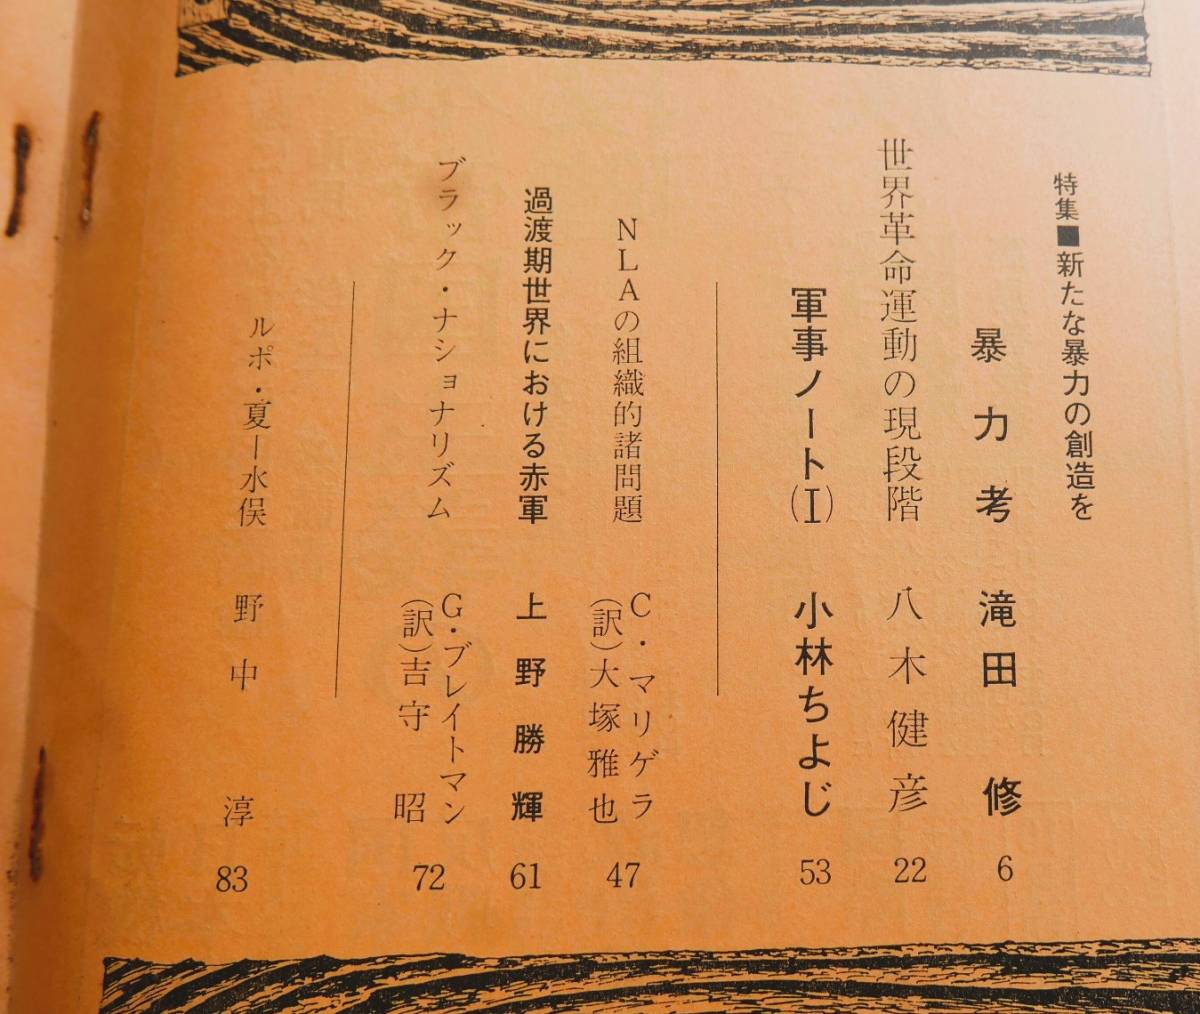 特集■新たな暴力の創造を
暴力考 滝田 修 6
世界革命運動の現段階 八木健彦 22
軍事ノート(I) 小林ちよじ 53
NLAの組織的諸問題 C・マリゲラ
(訳)大塚雅也 47
過渡期世界における赤軍 上野勝輝 61
ブラック・ナショナリズム G・ブレイトマン
(訳)吉守 昭 72
ルポ・夏―水俣 野中 淳 83